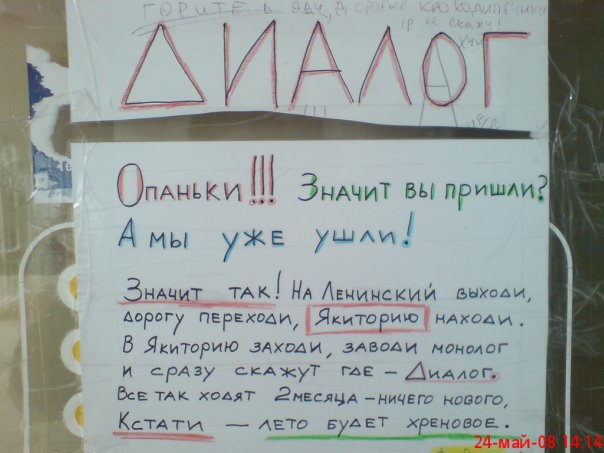 ГОРИТЕ В АДУ,
не скажу!
ДИАЛОГ
Опаньки!!! Значит вы пришли?
А мы уже ушли!
Значит так! На Ленинский выходи,
дорогу переходи, Якиторию находи.
В Якиторию заходи, заводи монолог
и сразу скажут где – Диалог.
Все так ходят 2 месяца – ничего нового,
Кстати – лето будет хреновое.
24-май-08 14:14